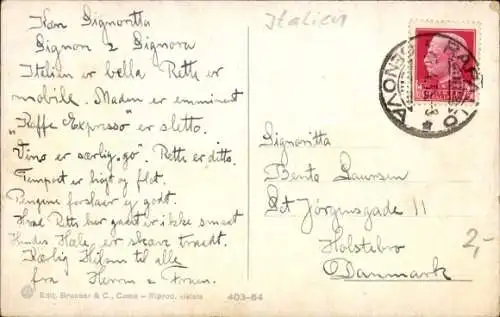 Italien
Kæra Signoritta
Signor & Signora
Italien er bella Rette er
mobile. Maden er emminent
"Kaffe Expresso" er sletto.
"Vino er særlig go". Rette er ditto.
Temporet er højt og flot.
Pengene forslaer godt.
Hvad Rette har gaaet er ikke smaat
Hendes Hæle er skæve traadt.
Kærlig Hilsen til alle
fra Herren & Fruen.
Signoritta
Bente Laursen
Sct Jörgensgade 11
Holstebro
Danmark
2,-
RAPALLO
GENOVA
Edit. Brunner & C., Como - Riprod. vietata
403-64